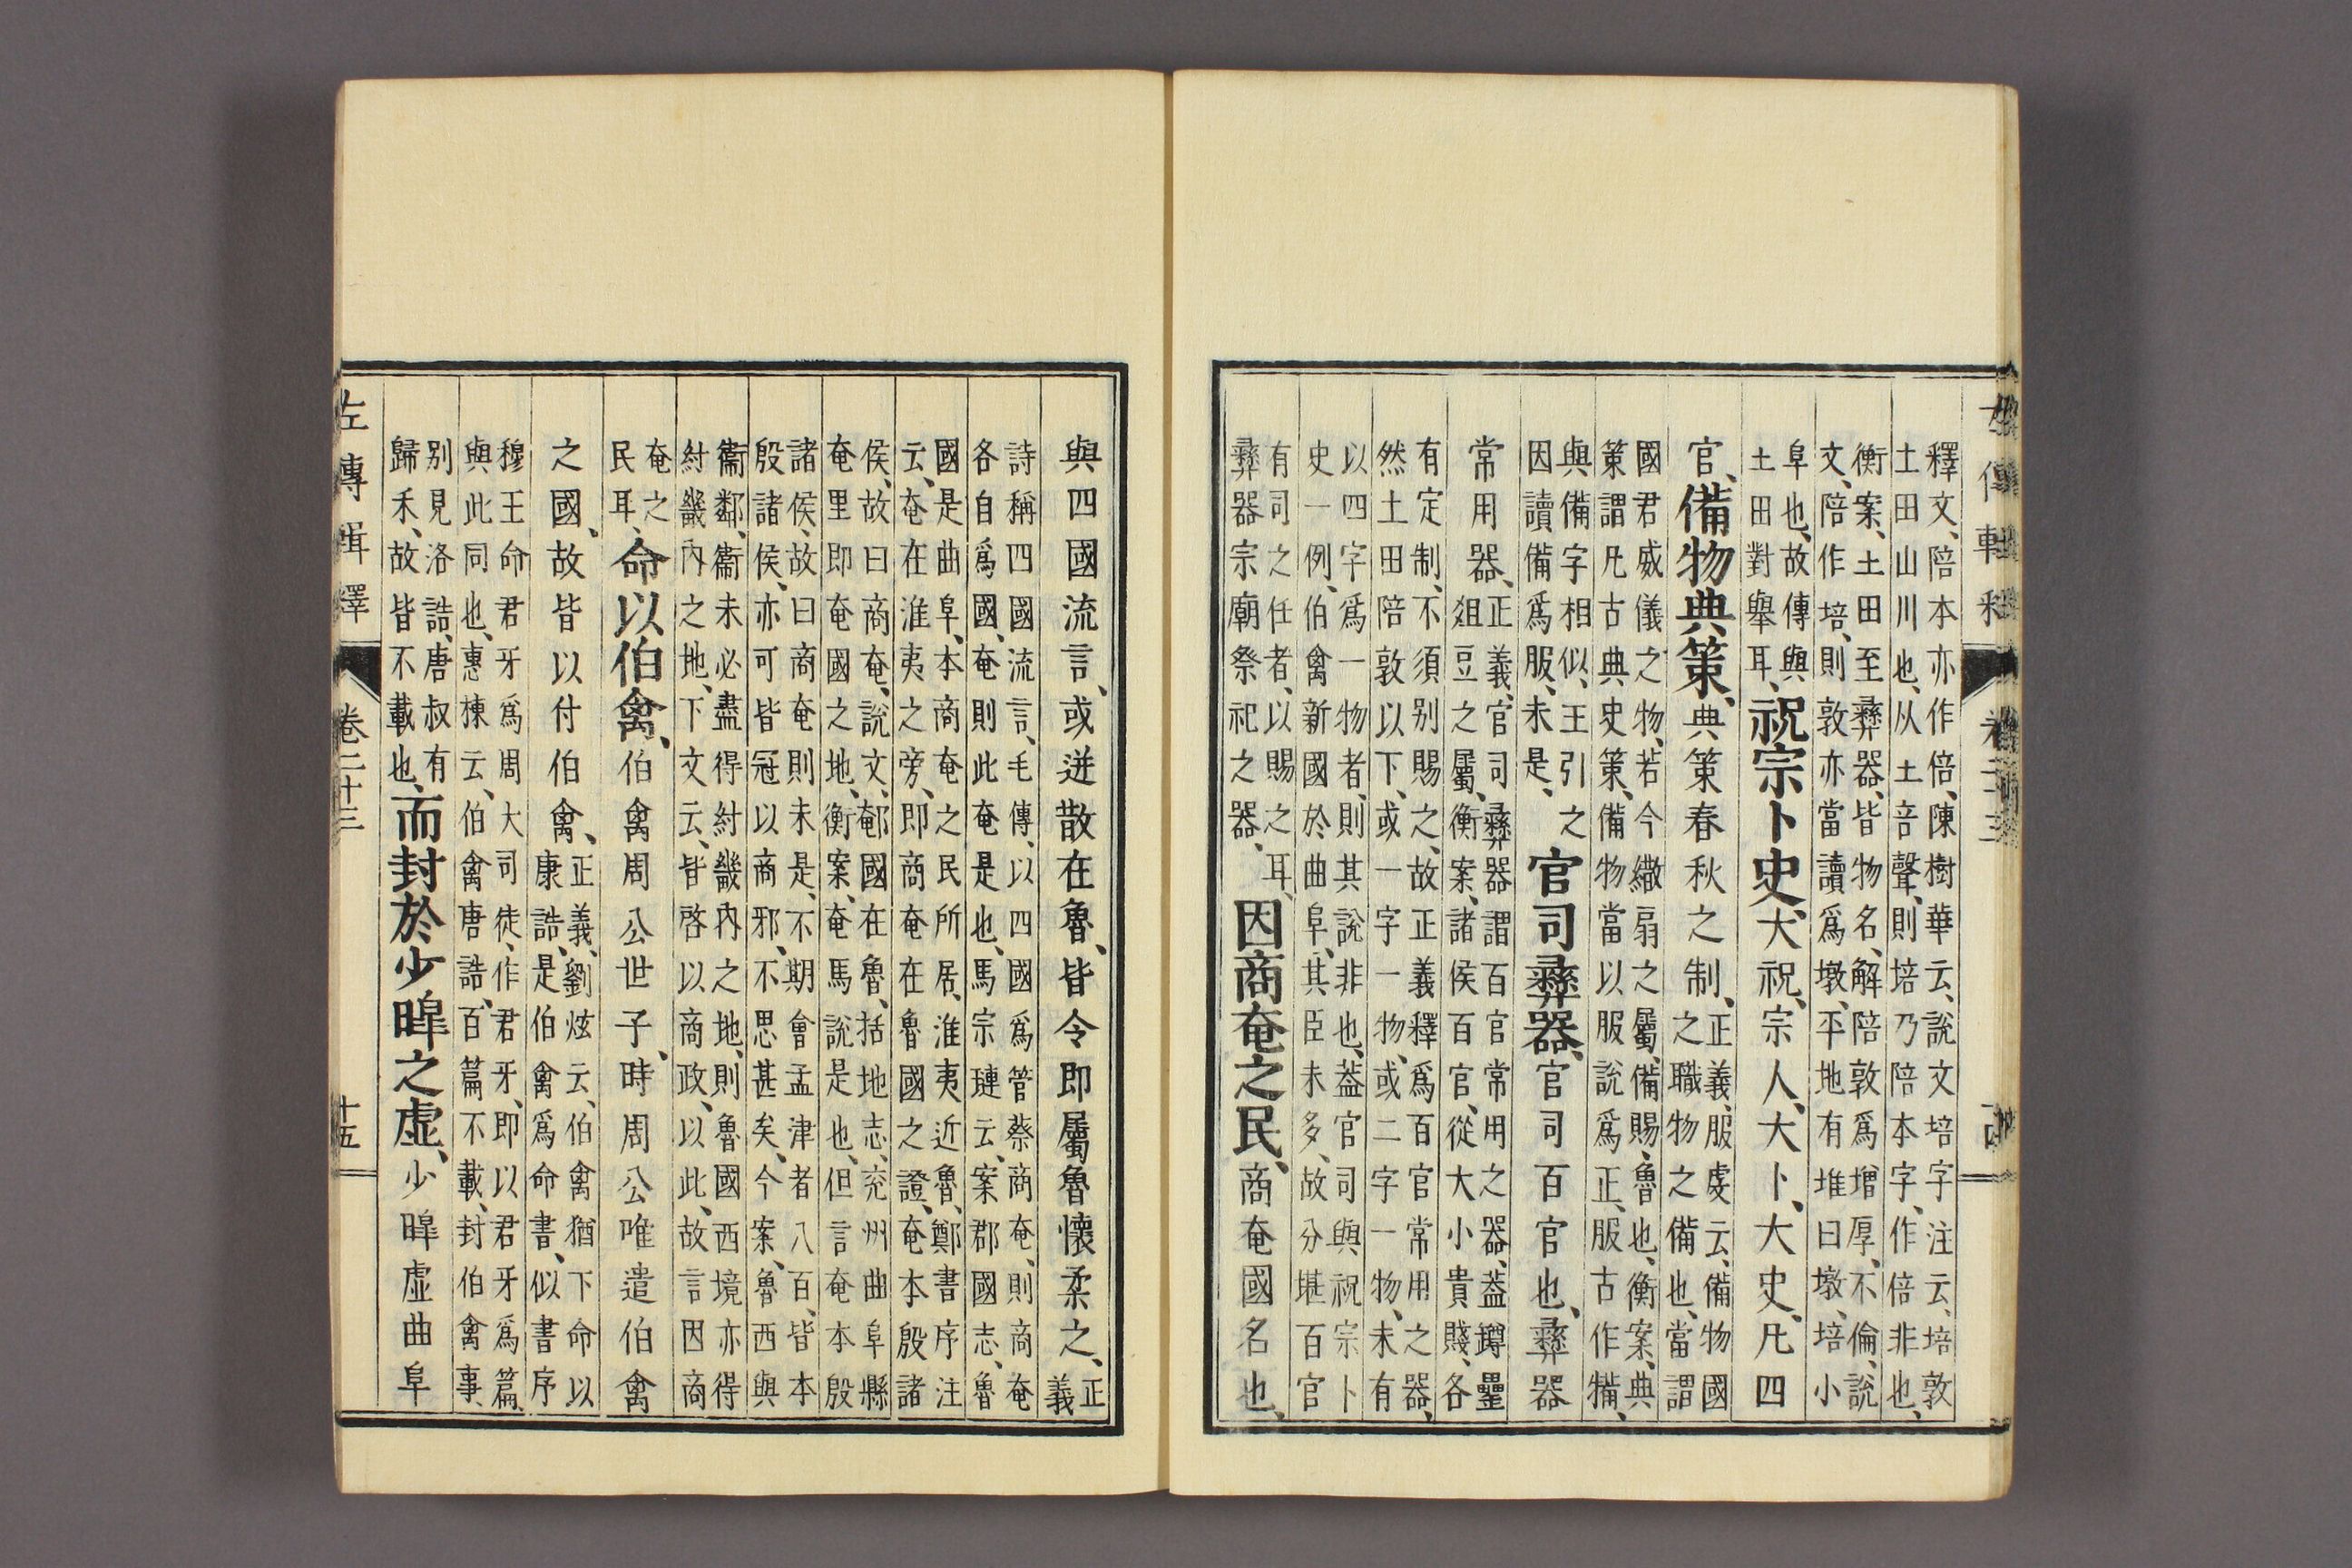 釋文、陪本亦作倍、陳樹華云、說文培字注云、培敦
土田山川也、从土咅聲、則培乃陪本字、作倍非也、
衡案、土田至彝器、皆物名、解陪敦爲增厚、不倫、說
文、陪作培、則敦亦當讀爲墩、平地有堆曰墩、培小
阜也、故傳與
土田對舉耳、
祝宗卜史、大祝、宗人、大卜、大史、凡四
官、備物典策、典策春秋之制、
正義、服虔云、備物國
之職物之備也、當謂
國君威儀之物、若今繖扇之屬、備賜魯也、衡案、典
策謂凡古典史策、備物當以服說爲正、服古作犕、
與備字相似、王引之
因讀備爲服、未是、
官司彝器、官司百官也、彝器
常用器、
正義、官司彝器謂百官常用之器、蓋罇罍
俎豆之屬、衡案、諸侯百官、從大小貴賤、各
有定制、不須別賜之、故正義釋爲百官常用之器、
然土田陪敦以下、或一字一物、或二字一物、未有
以四字爲一物者、則其說非也、蓋官司與祝宗卜
史一例、伯禽新國於曲阜、其臣未多、故分堪百官
有司之任者、以賜之耳、
彝器宗廟祭祀之器、
因商奄之民、商奄國名也、
與四國流言、或迸散在魯、皆令即屬魯懷柔之、
正
義
詩稱四國流言、毛傳、以四國爲管蔡商奄、則商奄
各自爲國、奄則此奄是也、馬宗璉云、案郡國志、魯
國是曲阜、本商奄之民所居、淮夷近魯、鄭書序注
云、奄在淮夷之旁、即商奄在魯國之證、奄本殷諸
侯、故曰商奄、說文、鄅國在魯、括地志、兗州曲阜縣
奄里即奄國之地、衡案、奄馬說是也、但言奄本殷
諸侯、故曰商奄則未是、不期會孟津者八百、皆本
殷諸侯、亦可皆冠以商邪、不思甚矣、今案、魯西與
衞鄰、衞未必盡得紂畿內之地、則魯國西境亦得
紂畿內之地、下文云、皆啓以商政、以此、故言因商
奄之
民耳、
命以伯禽、伯禽周公世子、時周公唯遣伯禽
之國、故皆以付伯禽、
正義、劉炫云、伯禽猶下命以
康誥、是伯禽爲命書、似書序
穆王命君牙爲周大司徒、作君牙、即以君牙爲篇、
與此同也、惠棟云、伯禽唐誥、百篇不載、封伯禽事、
別見洛誥、唐叔有
歸禾、故皆不載也、
而封於少皥之虛、少皥虛曲阜
左傳輯釋 卷二十三 十五